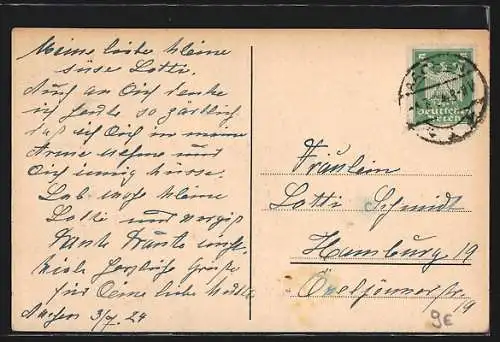 Meine liebe kleine
süsse Lotti.
Auch an Dich denke
ich heute so zärtlich
daß ich Dich in meine
Arme nehme und
Dich innig küsse.
Leb wohl kleine
Lotti und vergiß
Tante nicht.
Viele herzliche Grüße
für Deine liebe
3/9. 24
Deutsches
Reich
Fräulein
Lotti Schmidt
Hamburg 19
19
9€